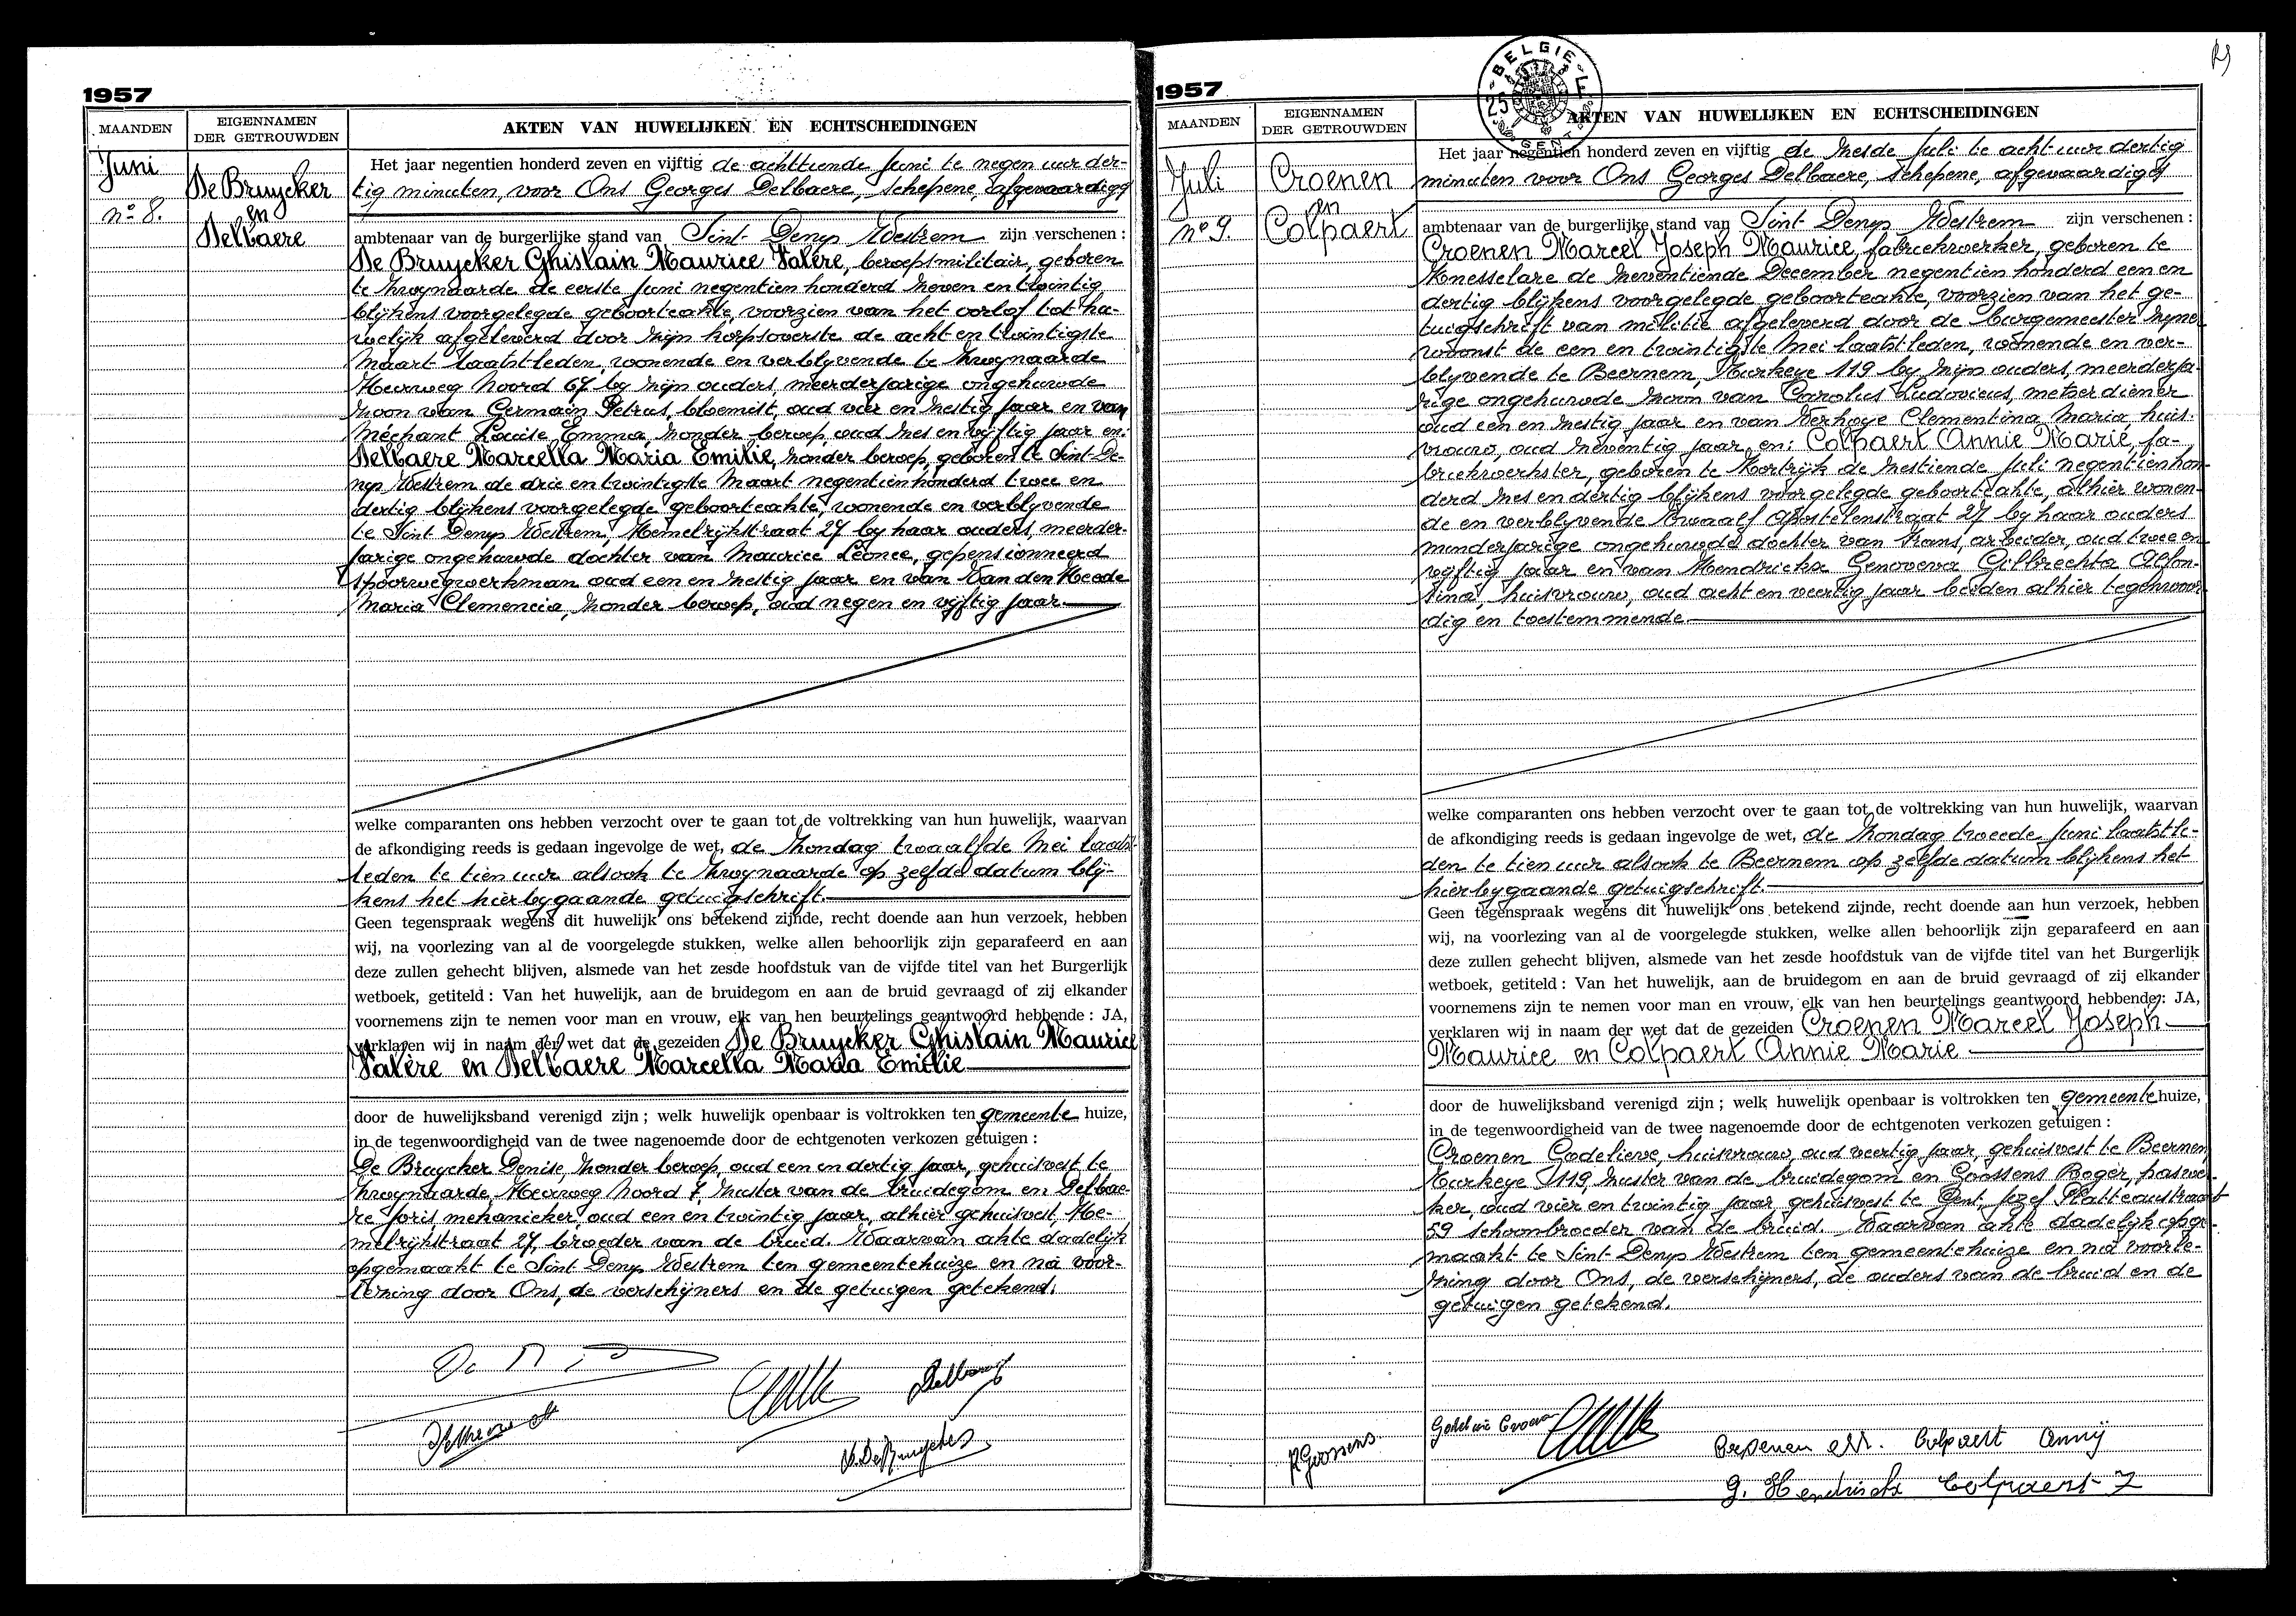 1957
MAANDEN
EIGENNAMEN
DER GETROUWDEN
AKTEN VAN HUWELIJKEN EN ECHTSCHEIDINGEN
Juni
nº 8.
De Bruycker
en
Delbaere
Het jaar negentien honderd zeven en vijftig de achttiende Juni te negen uur der-
tig minuten, voor Ons Georges Delbaere, schepene, afgevaardigd
ambtenaar van de burgerlijke stand van Sint Denys Westrem zijn verschenen :
De Bruycker Ghislain Maurice Valère, beroepsmilitair, geboren
te Zwynaarde de eerste Juni negentien honderd zeven en twintig
blijkens voorgelegde geboorteakte, voorzien van het oorlof tot hu-
welijk afgeleverd door zijn korpsoverste de acht en twintigste
Maart laatstleden, wonende en verblyvende te Zwynaarde
Heerweg Noord 67 by zijn ouders, meerderjarige ongehuwde
zoon van Germain Petrus, bloemist, oud vier en zestig jaar en van
Méchant Louise Emma, zonder beroep, oud zes en vyftig jaar en:
Delbaere Marcella Maria Emilie, zonder beroep, geboren te Sint De-
nys Westrem de drie en twintigste Maart negentienhonderd twee en
dertig blijkens voorgelegde geboorteakte, wonende en verblyvende
te Sint Denys Westrem, Hemelrijkstraat 27 by haar ouders, meerder-
jarige ongehuwde dochter van Maurice Léonce, gepensionneerd
spoorwegwerkman oud een en zestig jaar en van Van den Heede
Maria Clemencia, zonder beroep, oud negen en vyftig jaar
welke comparanten ons hebben verzocht over te gaan tot de voltrekking van hun huwelijk, waarvan
de afkondiging reeds is gedaan ingevolge de wet, de Zondag twaalfde Mei laatst-
leden te tien uur alsook te Zwynaarde op zelfde datum blij-
kens het hierbygaande getuigschrift.
Geen tegenspraak wegens dit huwelijk ons betekend zijnde, recht doende aan hun verzoek, hebben
wij, na voorlezing van al de voorgelegde stukken, welke allen behoorlijk zijn geparafeerd en aan
deze zullen gehecht blijven, alsmede van het zesde hoofdstuk van de vijfde titel van het Burgerlijk
wetboek, getiteld : Van het huwelijk, aan de bruidegom en aan de bruid gevraagd of zij elkander
voornemens zijn te nemen voor man en vrouw, elk van hen beurtelings geantwoord hebbende : JA,
verklaren wij in naam der wet dat de gezeiden De Bruycker Ghislain Maurice
Valère en Delbaere Marcella Maria Emilie
door de huwelijksband verenigd zijn ; welk huwelijk openbaar is voltrokken ten gemeente huize,
in de tegenwoordigheid van de twee nagenoemde door de echtgenoten verkozen getuigen :
De Bruycker Denise, zonder beroep, oud een en dertig jaar, gehuisvest te
Zwynaarde, Heerweg Noord 7, zuster van de bruidegom en Delbae-
re Joris mekanieker, oud een en twintig jaar, alhier gehuisvest, He-
melrijkstraat 27, broeder van de bruid. Waarvan akte dadelijk
opgemaakt te Sint Denys Westrem ten gemeentehuize en na voor-
lezing door Ons, de verschijners en de getuigen getekend.
1957
BELGIE
25 F
MAANDEN
EIGENNAMEN
DER GETROUWDEN
AKTEN VAN HUWELIJKEN EN ECHTSCHEIDINGEN
Juli
nº 9.
Croenen
en
Colpaert
Het jaar negentien honderd zeven en vijftig de zesde Juli te acht uur dertig
minuten voor Ons Georges Delbaere, schepene, afgevaardigd
ambtenaar van de burgerlijke stand van Sint Denys Westrem zijn verschenen :
Croenen Marcel Joseph Maurice, fabriekwerker, geboren te
Knesselare de zeventiende December negentien honderd een en
dertig blijkens voorgelegde geboorteakte, voorzien van het ge-
tuigschrift van militie afgeleverd door de burgemeester zijner
woonst de een en twintigste Mei laatstleden, wonende en ver-
blyvende te Beernem, Kurkeye 119 by zijn ouders, meerderja-
rige ongehuwde zoon van Carolus Ludovicus, metserdiener
oud een en zestig jaar en van Verhoye Clementina Maria, huis-
vrouw, oud zeventig jaar, en: Colpaert Annie Marie, fa-
briekwerkster, geboren te Kortrijk de zestiende Juli negentienhon-
derd zes en dertig blijkens voorgelegde geboorteakte, alhier wonen-
de en verblyvende Twaalf Apostelenstraat 27 by haar ouders
minderjarige ongehuwde dochter van Frans, arbeider, oud twee en
vyftig jaar en van Hendrickx Genoveva Gilbrechta Alfon-
sina, huisvrouw, oud acht en veertig jaar beiden alhier tegenwoor-
dig en toestemmende
welke comparanten ons hebben verzocht over te gaan tot de voltrekking van hun huwelijk, waarvan
de afkondiging reeds is gedaan ingevolge de wet, de Zondag tweede Juni laatstle-
den te tien uur alsook te Beernem op zelfde datum blijkens het
hierbygaande getuigschrift.
Geen tegenspraak wegens dit huwelijk ons betekend zijnde, recht doende aan hun verzoek, hebben
wij, na voorlezing van al de voorgelegde stukken, welke allen behoorlijk zijn geparafeerd en aan
deze zullen gehecht blijven, alsmede van het zesde hoofdstuk van de vijfde titel van het Burgerlijk
wetboek, getiteld : Van het huwelijk, aan de bruidegom en aan de bruid gevraagd of zij elkander
voornemens zijn te nemen voor man en vrouw, elk van hen beurtelings geantwoord hebbende : JA,
verklaren wij in naam der wet dat de gezeiden Croenen Marcel Joseph
Maurice en Colpaert Annie Marie
door de huwelijksband verenigd zijn ; welk huwelijk openbaar is voltrokken ten gemeente huize,
in de tegenwoordigheid van de twee nagenoemde door de echtgenoten verkozen getuigen :
Croenen Godelieve, huisvrouw, oud veertig jaar, gehuisvest te Beernem,
Kurkeye 119, zuster van de bruidegom en Goossens Roger, paswer-
ker, oud vier en twintig jaar gehuisvest te Gent, Jozef Platteaustraat
59 schoonbroeder van de bruid. Waarvan akte dadelijk opge-
maakt te Sint Denys Westrem ten gemeentehuize en na voorle-
zing door Ons, de verschijners, de ouders van de bruid en de
getuigen getekend.
R Goossens
Croenen M. Colpaert Anny
G. Hendrickx Colpaert F